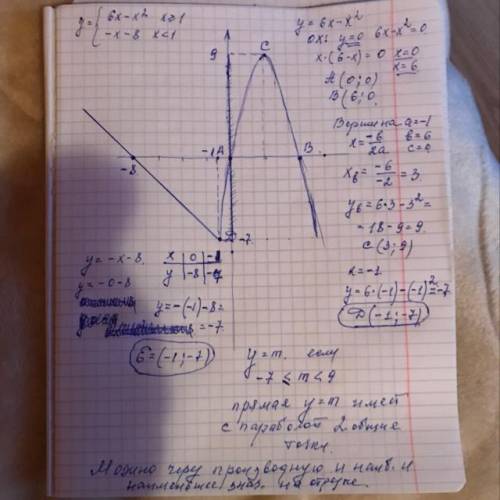 y = { 6x - x² x ≥ 1
-x - 8 x < 1
y = 6x - x²
ox: y = 0 6x - x² = 0
x·(6 - x) = 0 x = 0
x = 6
A (0; 0)
B (6; 0
Вершина a = -1
x = -b/2a b = 6
c = 0
x_в = -6/-2 = 3
y_в = 6·3 - 3² =
= 18 - 9 = 9
C (3; 9)
x = -1
y = 6·(-1) - (-1)² = -7
D (-1; -7)
9
C
-8
-1 A
B
D -7
y = -x - 8
x | 0 | -1
y | -8 | -7
y = -0 - 8
y = -(-1) - 8 =
= -7
E = (-1; -7)
y = m. если
-7 ≤ m < 9
прямая y = m имеет
с параболой 2 общие
точки.
Можно через производную и наиб. и
наименьшее знач. на отрезке